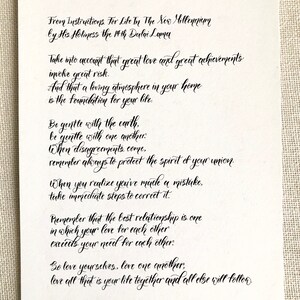 From Instructions For Life In The New Millennium
by His Holiness the 14th Dalai Lama
Take into account that great love and great achievements
invoke great risk.
And that a loving atmosphere in your home
is the foundation for your life.
Be gentle with the earth,
be gentle with one another.
When disagreements come,
remember always to protect the spirit of your union.
When you realize you've made a mistake,
take immediate steps to correct it.
Remember that the best relationship is one
in which your love for each other
exceeds your need for each other.
So love yourselves, love one another,
love all that is your life together and all else will follow